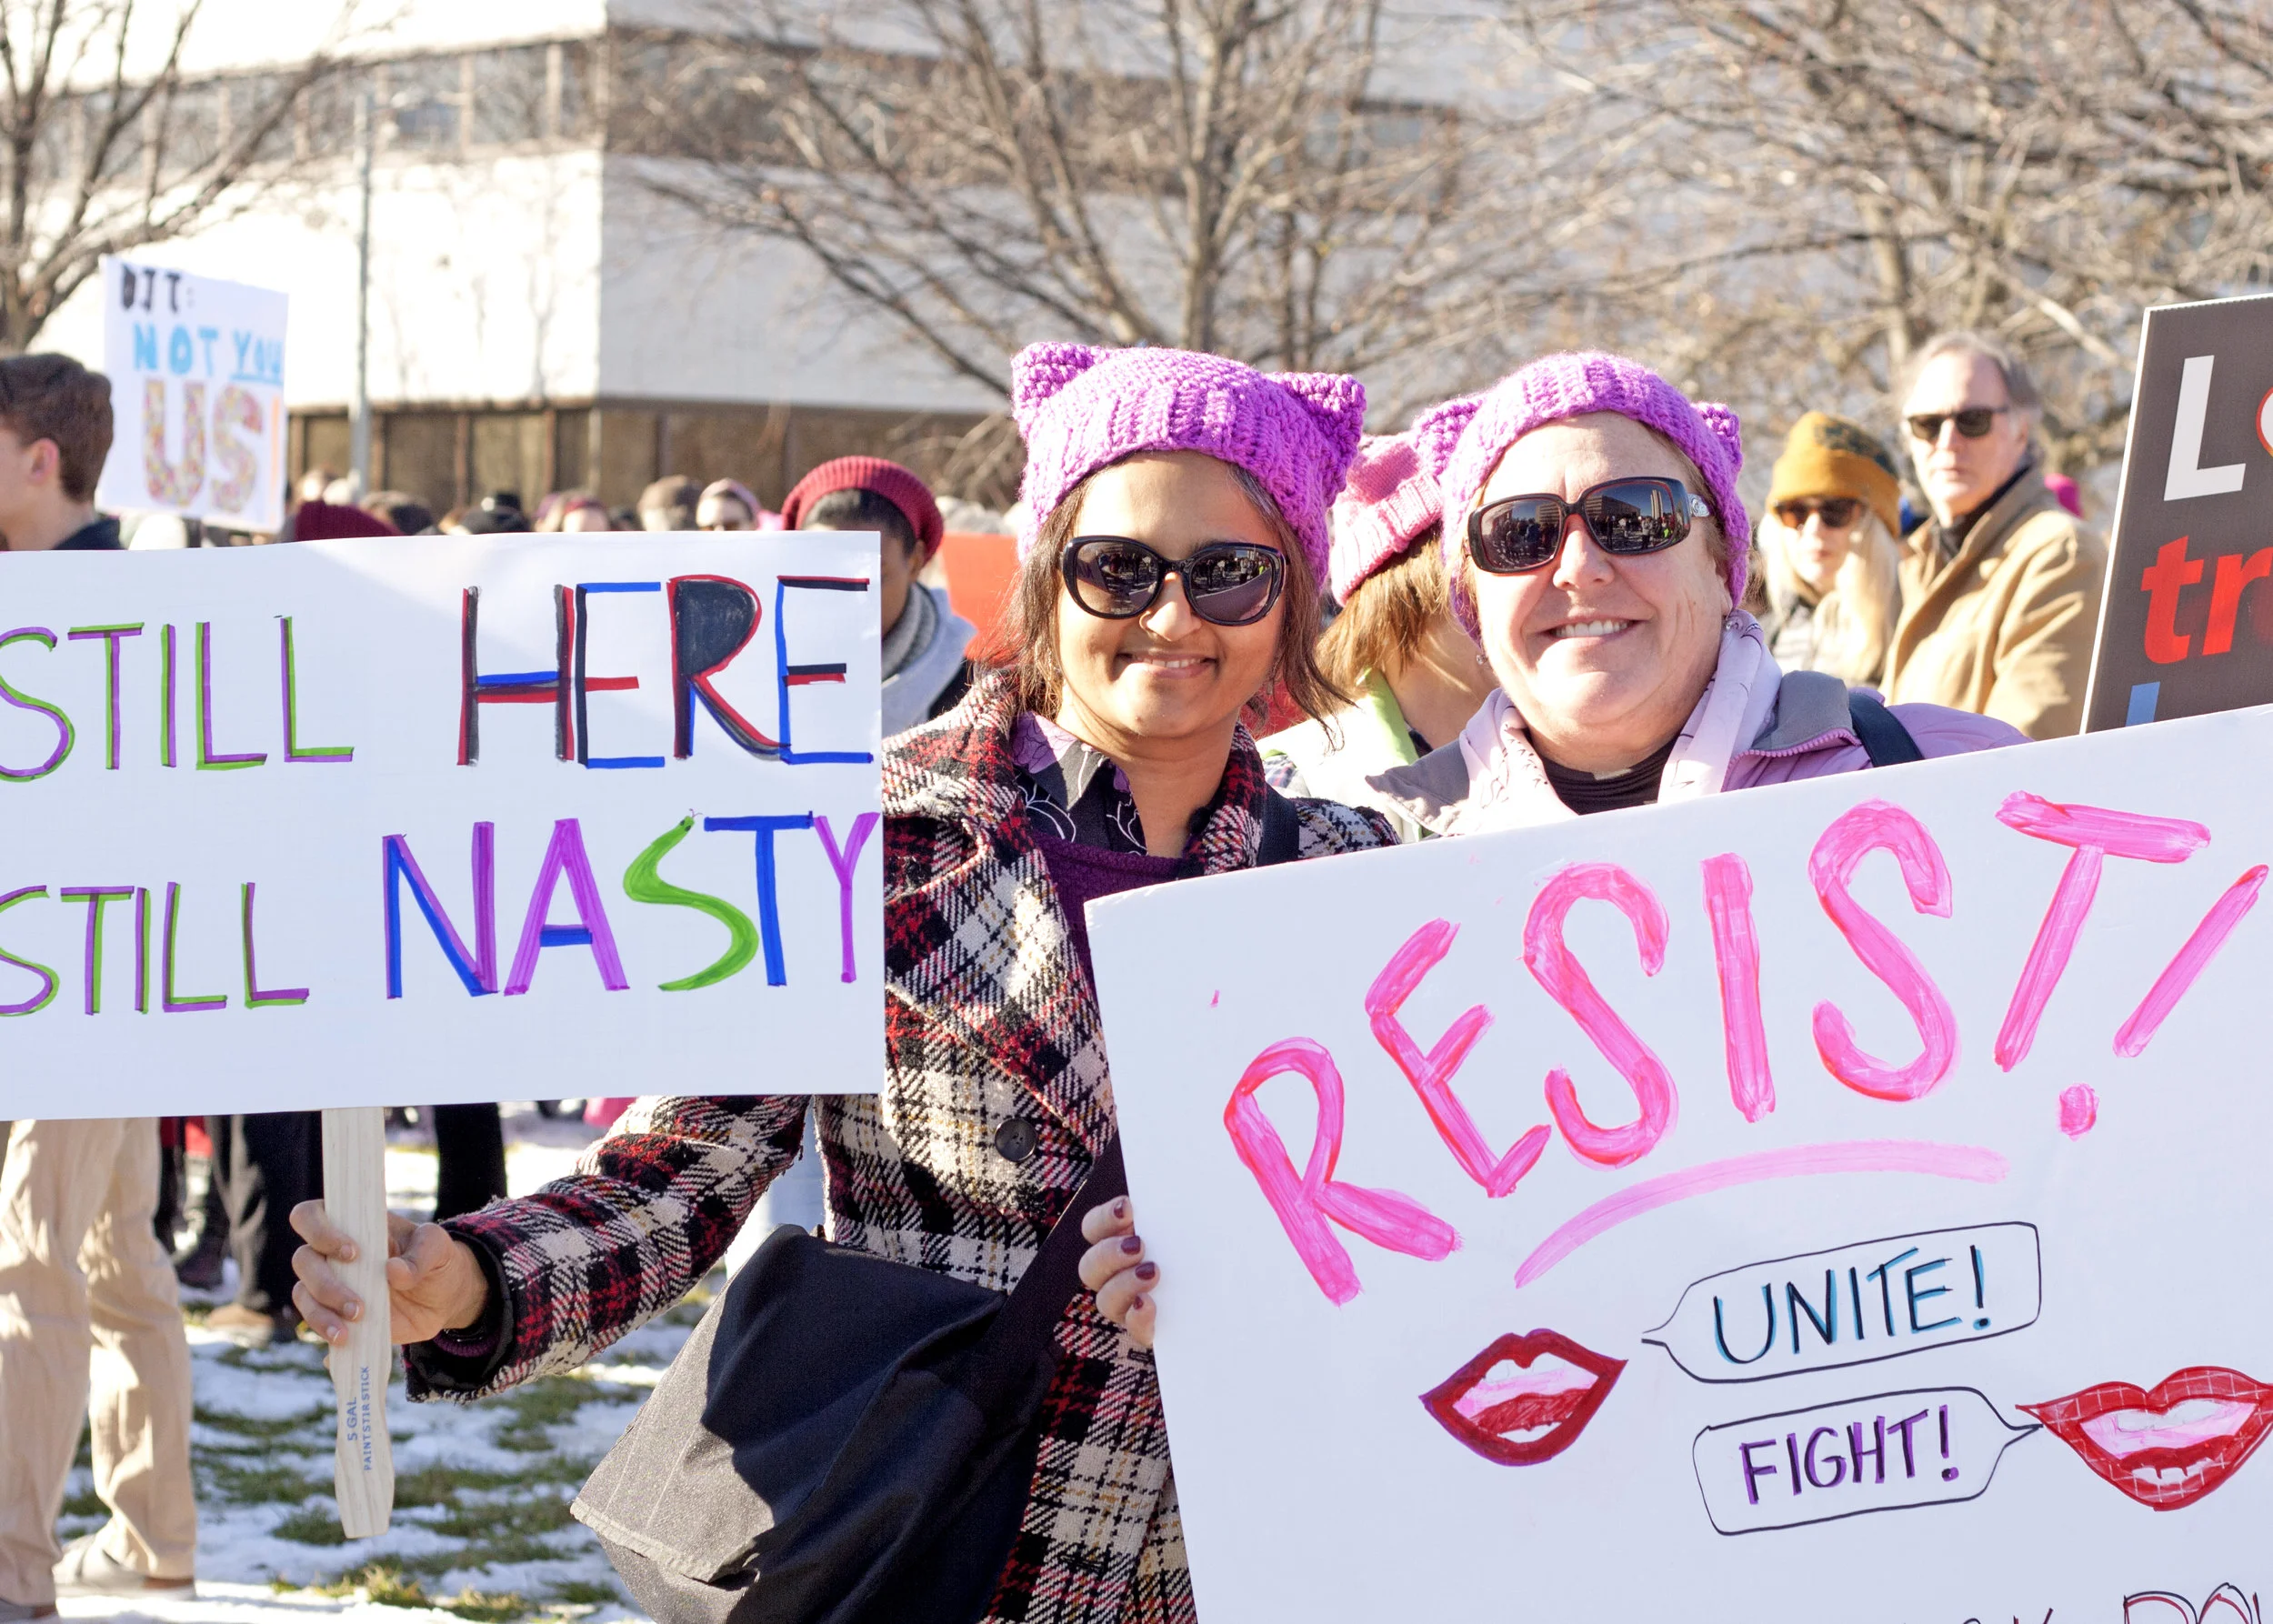 DJT:
NOT YOU
US!
STILL HERE
STILL NASTY
5 GAL
PAINT STIR STICK
RESIST!
UNITE!
FIGHT!